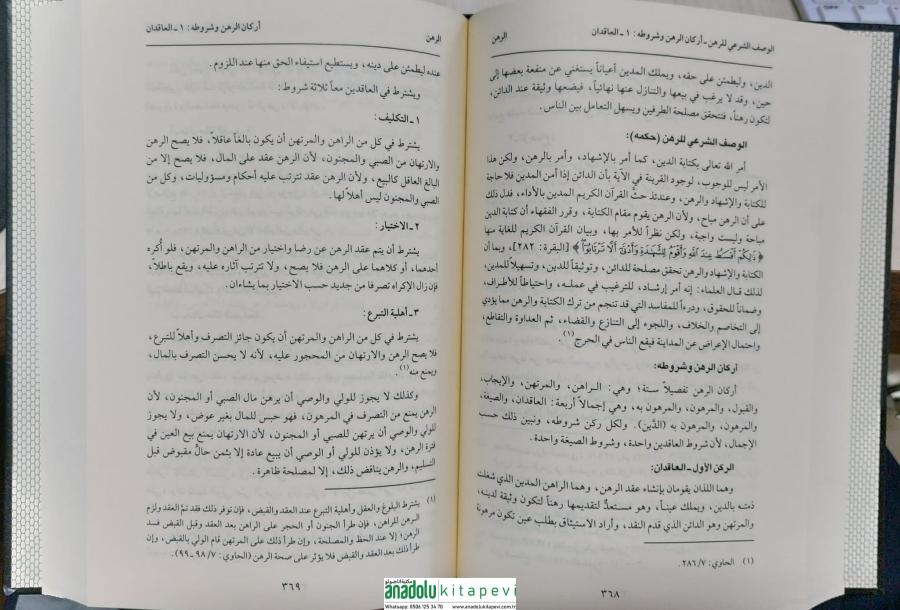 الوصف الشرعي للرهن ـ أركان الرهن وشروطه: ١ ـ العاقدان
الرهن
الدين، وليطمئن على حقه، ويملك المدين أعياناً يستغني عن منفعة بعضها إلى
حين، وقد لا يرغب في بيعها والتنازل عنها نهائياً، فيضعها وثيقة عند الدائن؛
لتكون رهناً، فتتحقق مصلحة الطرفين ويسهل التعامل بين الناس.
الوصف الشرعي للرهن (حكمه):
أمر الله تعالى بكتابة الدين، كما أمر بالإشهاد، وأمر بالرهن، ولكن هذا
الأمر ليس للوجوب، لوجود القرينة في الآية بأن الدائن إذا أمن المدين فلا حاجة
للكتابة والإشهاد والرهن، وعندئذ حثَّ القرآن الكريم المدين بالأداء، فدل ذلك
على أن الرهن مباح، ولأن الرهن يقوم مقام الكتابة، وقرر الفقهاء أن كتابة الدين
مباحة وليست واجبة، ولكن نظراً للأمر بها، وبيان القرآن الكريم للغاية منها
﴿ ذَلِكُمْ أَقْسَطُ عِندَ اللَّهِ وَأَقْوَمُ لِلشَّهَدَةِ وَأَدْنَى أَلَّا تَرْتَابُوا ﴾ [البقرة: ٢٨٢]، وبما أن
الكتابة والإشهاد والرهن تحقق مصلحة للدائن، وتوثيقاً للدين، وتسهيلاً للمدين،
لذلك قال العلماء: إنه أمر إرشاد، للترغيب في عمله، واحتياطاً للأطراف،
وضماناً للحقوق، ودرءاً للمفاسد التي قد تنجم من ترك الكتابة والرهن مما يؤدي
إلى التخاصم والخلاف، واللجوء إلى التنازع والقضاء، ثم العداوة والتقاطع،
واحتمال الإعراض عن المداينة فيقع الناس في الحرج(١).
أركان الرهن وشروطه:
أركان الرهن تفصيلاً ستة؛ وهي: الراهن، والمرتهن، والإيجاب،
والقبول، والمرهون، والمرهون به، وهي إجمالاً أربعة: العاقدان، والصيغة،
والمرهون، والمرهون به (الدَّين). ولكل ركن شروطه، ونبين ذلك حسب
الإجمال، لأن شروط العاقدين واحدة، وشروط الصيغة واحدة.
الركن الأول ـ العاقدان:
وهما اللذان يقومان بإنشاء عقد الرهن، وهما الراهن المدين الذي شغلت
ذمته بالدين، ويملك عيناً، وهو مستعدٌّ لتقديمها رهناً لتكون وثيقة لدينه،
والمرتهن وهو الدائن الذي قدم النقد، وأراد الاستيثاق بطلب عين تكون مرهونة
(١) الحاوي: ٢٨٦/٧.
٣٦٨
الرهن
أركان الرهن وشروطه: ١ ـ العاقدان
عنده ليطمئن على دينه، ويستطيع استيفاء الحق منها عند اللزوم.
ويشترط في العاقدين معاً ثلاثة شروط:
١ ـ التكليف:
يشترط في كل من الراهن والمرتهن أن يكون بالغاً عاقلاً، فلا يصح الرهن
والارتهان من الصبي والمجنون، لأن الرهن عقد على المال، فلا يصح إلا من
البالغ العاقل كالبيع، ولأن الرهن عقد تترتب عليه أحكام ومسؤوليات، وكل من
الصبي والمجنون ليس أهلاً لها.
٢ ـ الاختيار:
يشترط أن يتم عقد الرهن عن رضا واختيار من الراهن والمرتهن، فلو أُكره
أحدهما، أو كلاهما على الرهن فلا يصح، ولا تترتب آثاره عليه، ويقع باطلاً،
فإن زال الإكراه تصرفا من جديد حسب الاختيار بما يشاءان.
٣ ـ أهلية التبرع:
يشترط في كل من الراهن والمرتهن أن يكون جائز التصرف وأهلاً للتبرع،
فلا يصح الرهن والارتهان من المحجور عليه، لأنه لا يحسن التصرف بالمال،
ويمنع منه(١).
وكذلك لا يجوز للولي والوصي أن يرهن مال الصبي أو المجنون، لأن
الرهن يمنع من التصرف في المرهون، فهو حبس للمال بغير عوض، ولا يجوز
للولي والوصي أن يرتهن للصبي أو المجنون، لأن الارتهان يمنع بيع العين في
فترة الرهن، ولا يؤذن للولي أو الوصي أن يبيع عادة إلا بثمن حالٍّ مقبوض قبل
التسليم، والرهن يناقض ذلك، إلا لمصلحة ظاهرة.
(١) يشترط البلوغ والعقل وأهلية التبرع عند العقد والقبض، فإن توفر ذلك فقد تمَّ العقد ولزم
الرهن للراهن، فإن طرأ الجنون أو الحجر على الراهن بعد العقد وقبل القبض فسد
الرهن؛ إلا عند الحظ والمصلحة، وإن طرأ ذلك على المرتهن قام الولي بالقبض، وإن
طرأ ذلك بعد العقد والقبض فلا يؤثر على صحة الرهن (الحاوي: ٧/ ٩٨ـ٩٩).
٣٦٩
مكتبة اناضولو
anadolu kitapevi
Whatsapp: 0506 125 34 78 www.anadolukitapevi.com.tr